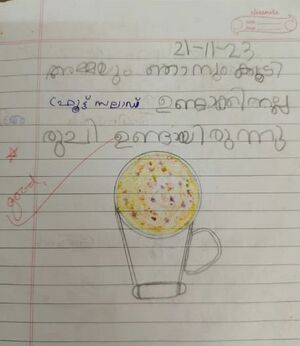 classmate
Date
Page
21-11-23
അമ്മയും ഞാനും കൂടി
ഫ്രൂട്ട് സലാഡ് ഉണ്ടാക്കി നല്ല
രുചി ഉണ്ടായിരുന്നു
good